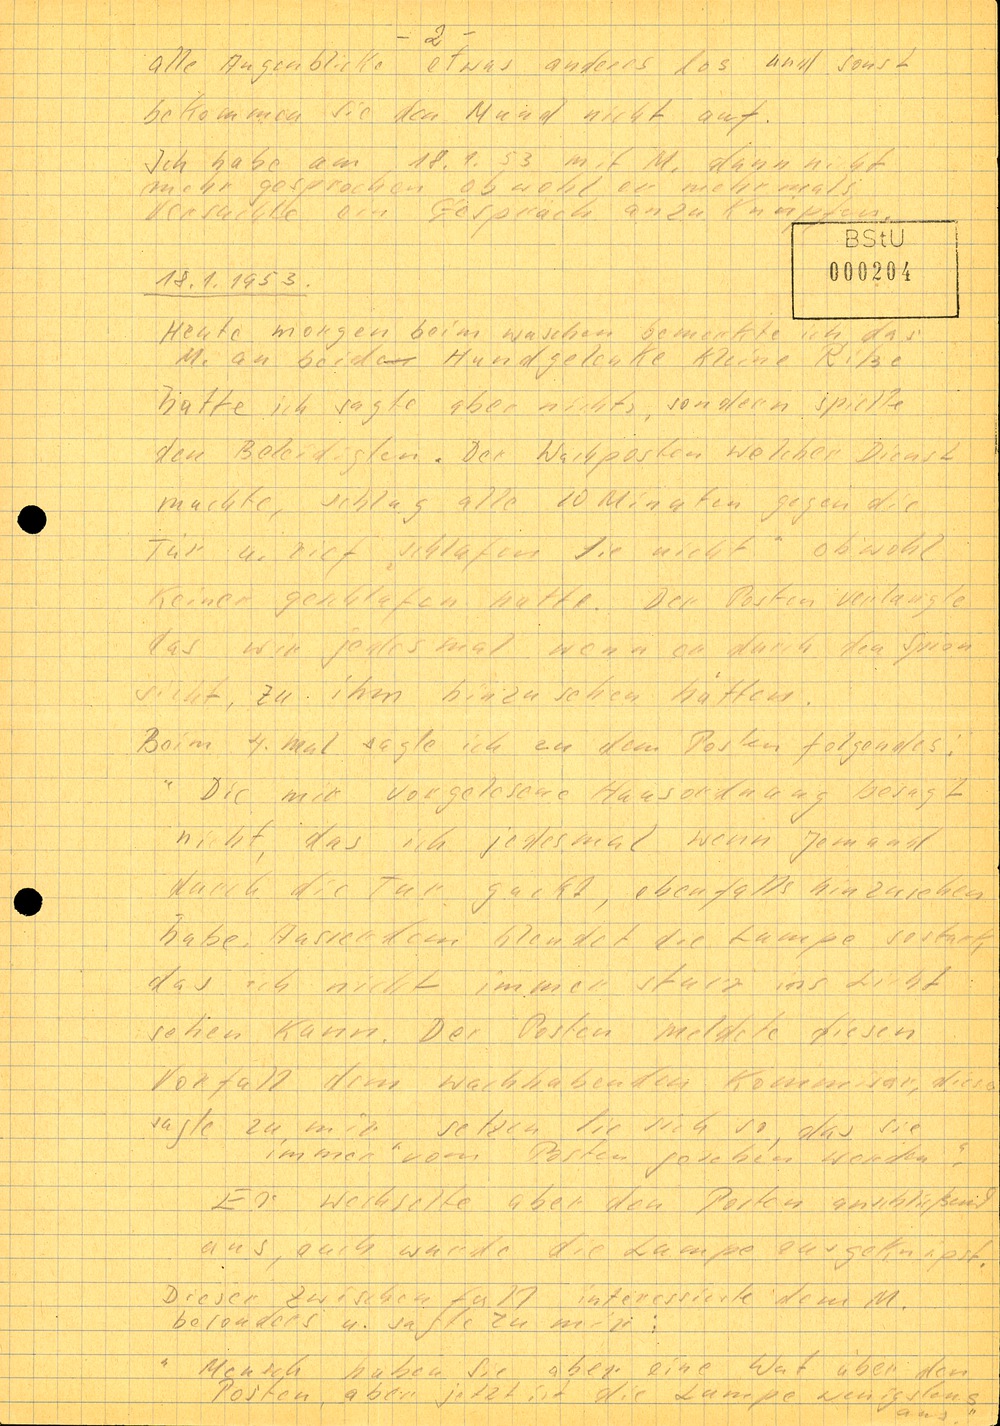 - 2 -
alle Augenblicke etwas anderes los und sonst
bekommen Sie den Mund nicht auf.
Ich habe am 18.1.53 mit M. dann nicht
mehr gesprochen obwohl er mehrmals
versuchte ein Gespräch anzuknüpfen.
BStU
000204
18.1.1953.
Heute morgen beim waschen bemerkte ich das
M. an beide Handgelenke kleine Riße
hatte ich sagte aber nichts, sondern spielte
den Beleidigten. Der Wachposten welcher Dienst
machte, schlug alle 10 Minuten gegen die
Tür u. rief „schlafen Sie nicht" obwohl
keiner geschlafen hatte. Der Posten verlangte
das wir jedesmal wenn er durch den Spion
sieht, zu ihm hinzusehen hätten.
Beim 4. mal sagte ich zu dem Posten folgendes:
" Die mir vorgelesene Hausordnung besagt
nicht, das ich jedesmal wenn Jemand
durch die Tür guckt, ebenfalls hinzusehen
habe. Ausserdem blendet die Lampe so stark,
das ich nicht immer sturr ins Licht
sehen kann. Der Posten meldete diesen
Vorfall dem wachhabenden Kommissar, dieser
sagte zu mir setzen Sie sich so, das sie
immer "vom Posten gesehen werden".
Er wechselte aber den Posten anschließend
aus, auch wurde die Lampe ausgeknipst.
Dieser Zwischenfall interessierte dem M.
besonders u. sagte zu mir:
" Mensch haben Sie aber eine Wut über den
Posten, aber jetzt ist die Lampe wenigstens
aus."